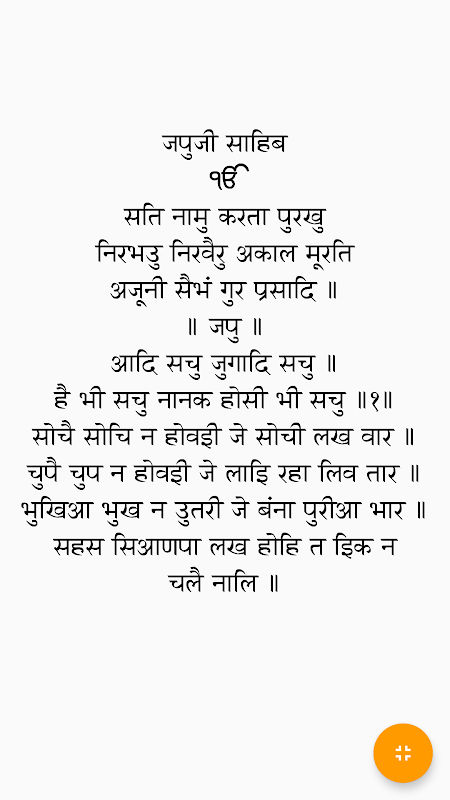 जपुजी साहिब
ੴ
सति नामु करता पुरखु
निरभउ निरवैरु अकाल मूरति
अजूनी सैभं गुर प्रसादि ॥
॥ जपु ॥
आदि सचु जुगादि सचु ॥
है भी सचु नानक होसी भी सचु ॥१॥
सोचै सोचि न होवई जे सोची लख वार ॥
चुपै चुप न होवई जे लाइ रहा लिव तार ॥
भुखिआ भुख न उतरी जे बंना पुरीआ भार ॥
सहस सिआणपा लख होहि त इक न
चलै नालि ॥